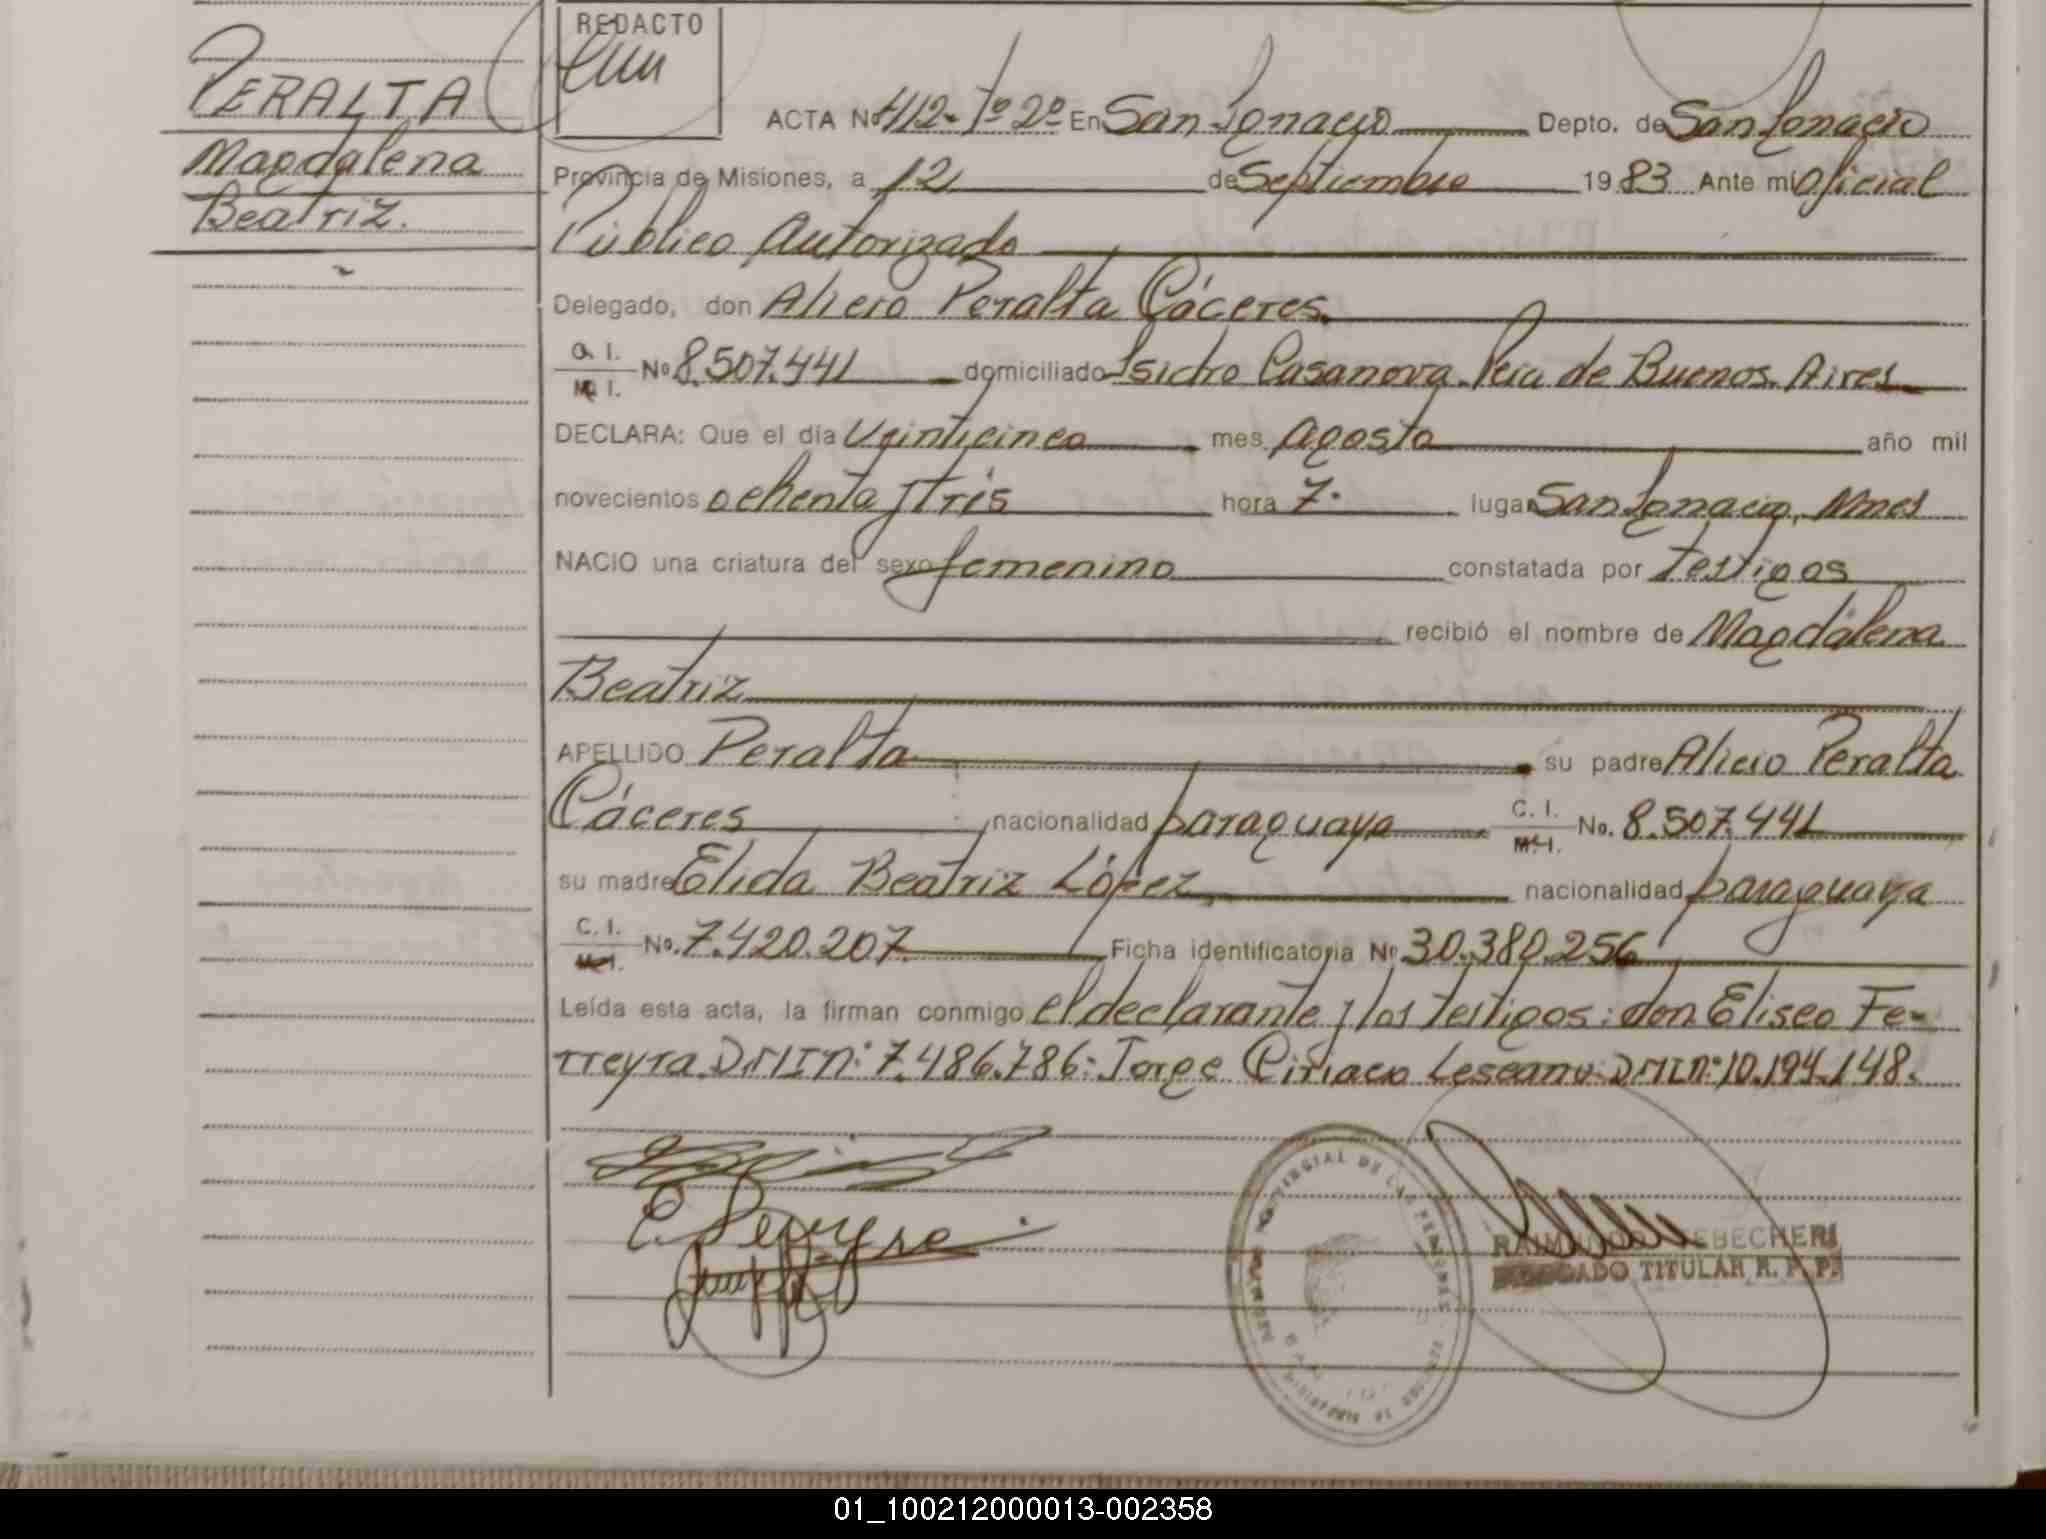 PERALTA
Magdalena
Beatriz.
REDACTO
ACTA Nº 412- Tº 2º En San Ignacio Depto. de San Ignacio
Provincia de Misiones, a 12 de Septiembre 1983 Ante mí Oficial
Público Autorizado
Delegado, don Alicio Peralta Cáceres.
C. I. / M. I. Nº 8.507.441 domiciliado Isidro Casanova. Pcia de Buenos Aires
DECLARA: Que el día Veinticinco mes Agosto año mil
novecientos ochenta y trés hora 7. lugar San Ignacio, Mnes
NACIO una criatura del sexo femenino constatada por testigos
recibió el nombre de Magdalena
Beatriz
APELLIDO Peralta su padre Alicio Peralta
Cáceres nacionalidad paraguaya C. I. / M. I. No. 8.507.441
su madre Elida Beatriz López nacionalidad paraguaya
C. I. / M. I. No. 7.420.207 Ficha identificatoria Nº 30.380.256
Leída esta acta, la firman conmigo el declarante y los testigos: don Eliseo Fe-
rreyra DMIn: 7.486.786: Jorge Ciriaco Lescano: DMIn: 10.194.148.
PROVINCIAL DE LAS PERSONAS
MISIONES
RAIMUNDO
DELEGADO TITULAR R. P. P.
01_100212000013-002358